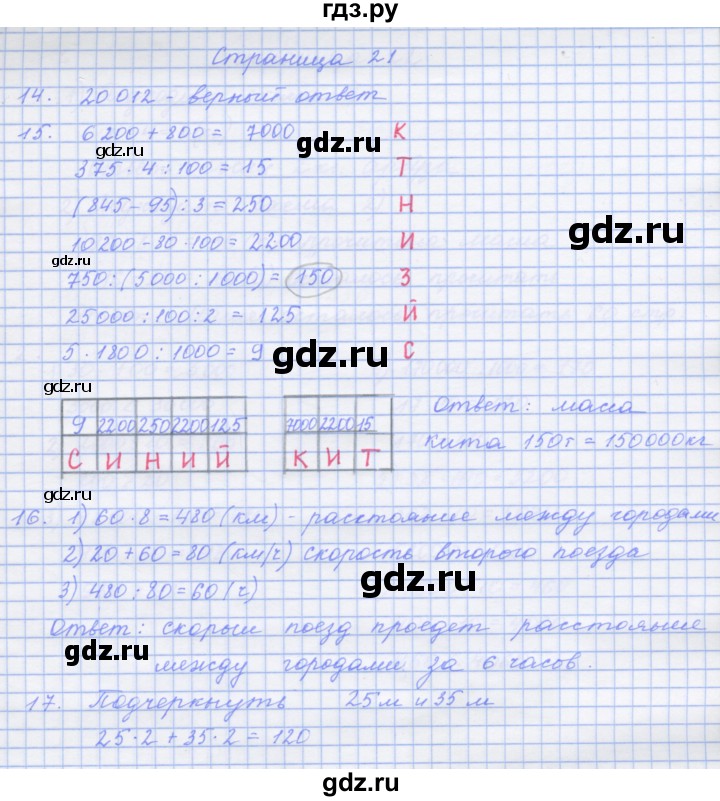 гдз.ру
Страница 21
14. 20 012 - верный ответ
15. 6 200 + 800 = 7000 К
gdz.ru
gdz.ru
375 · 4 : 100 = 15 Т
(845 - 95) : 3 = 250 Н
gdz.ru
10 200 - 80 · 100 = 2200 И
gdz.ru
750 : (5000 : 1000) = 150 З
25000 : 100 : 2 = 125 Й
5 · 1800 : 1000 = 9 С
gdz.ru
gdz.ru
9 2200 250 2200 125 7000 2200 15
С И Н И Й К И Т
Ответ: масса
кита 150т = 150000кг
gdz.ru
16. 1) 60 · 8 = 480 (км) - расстояние между городами
2) 20 + 60 = 80 (км/ч) скорость второго поезда
3) 480 : 80 = 60 (ч)
gdz.ru
Ответ: скорый поезд проедет расстояние
между городами за 6 часов.
gdz.ru
17. Подчеркнуть 25м и 35м
25 · 2 + 35 · 2 = 120
gdz.ru
gdz.ru
gdz.ru